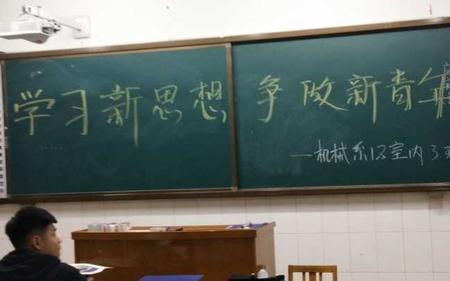 学习新思想 争做新青年
—机械系12室内3